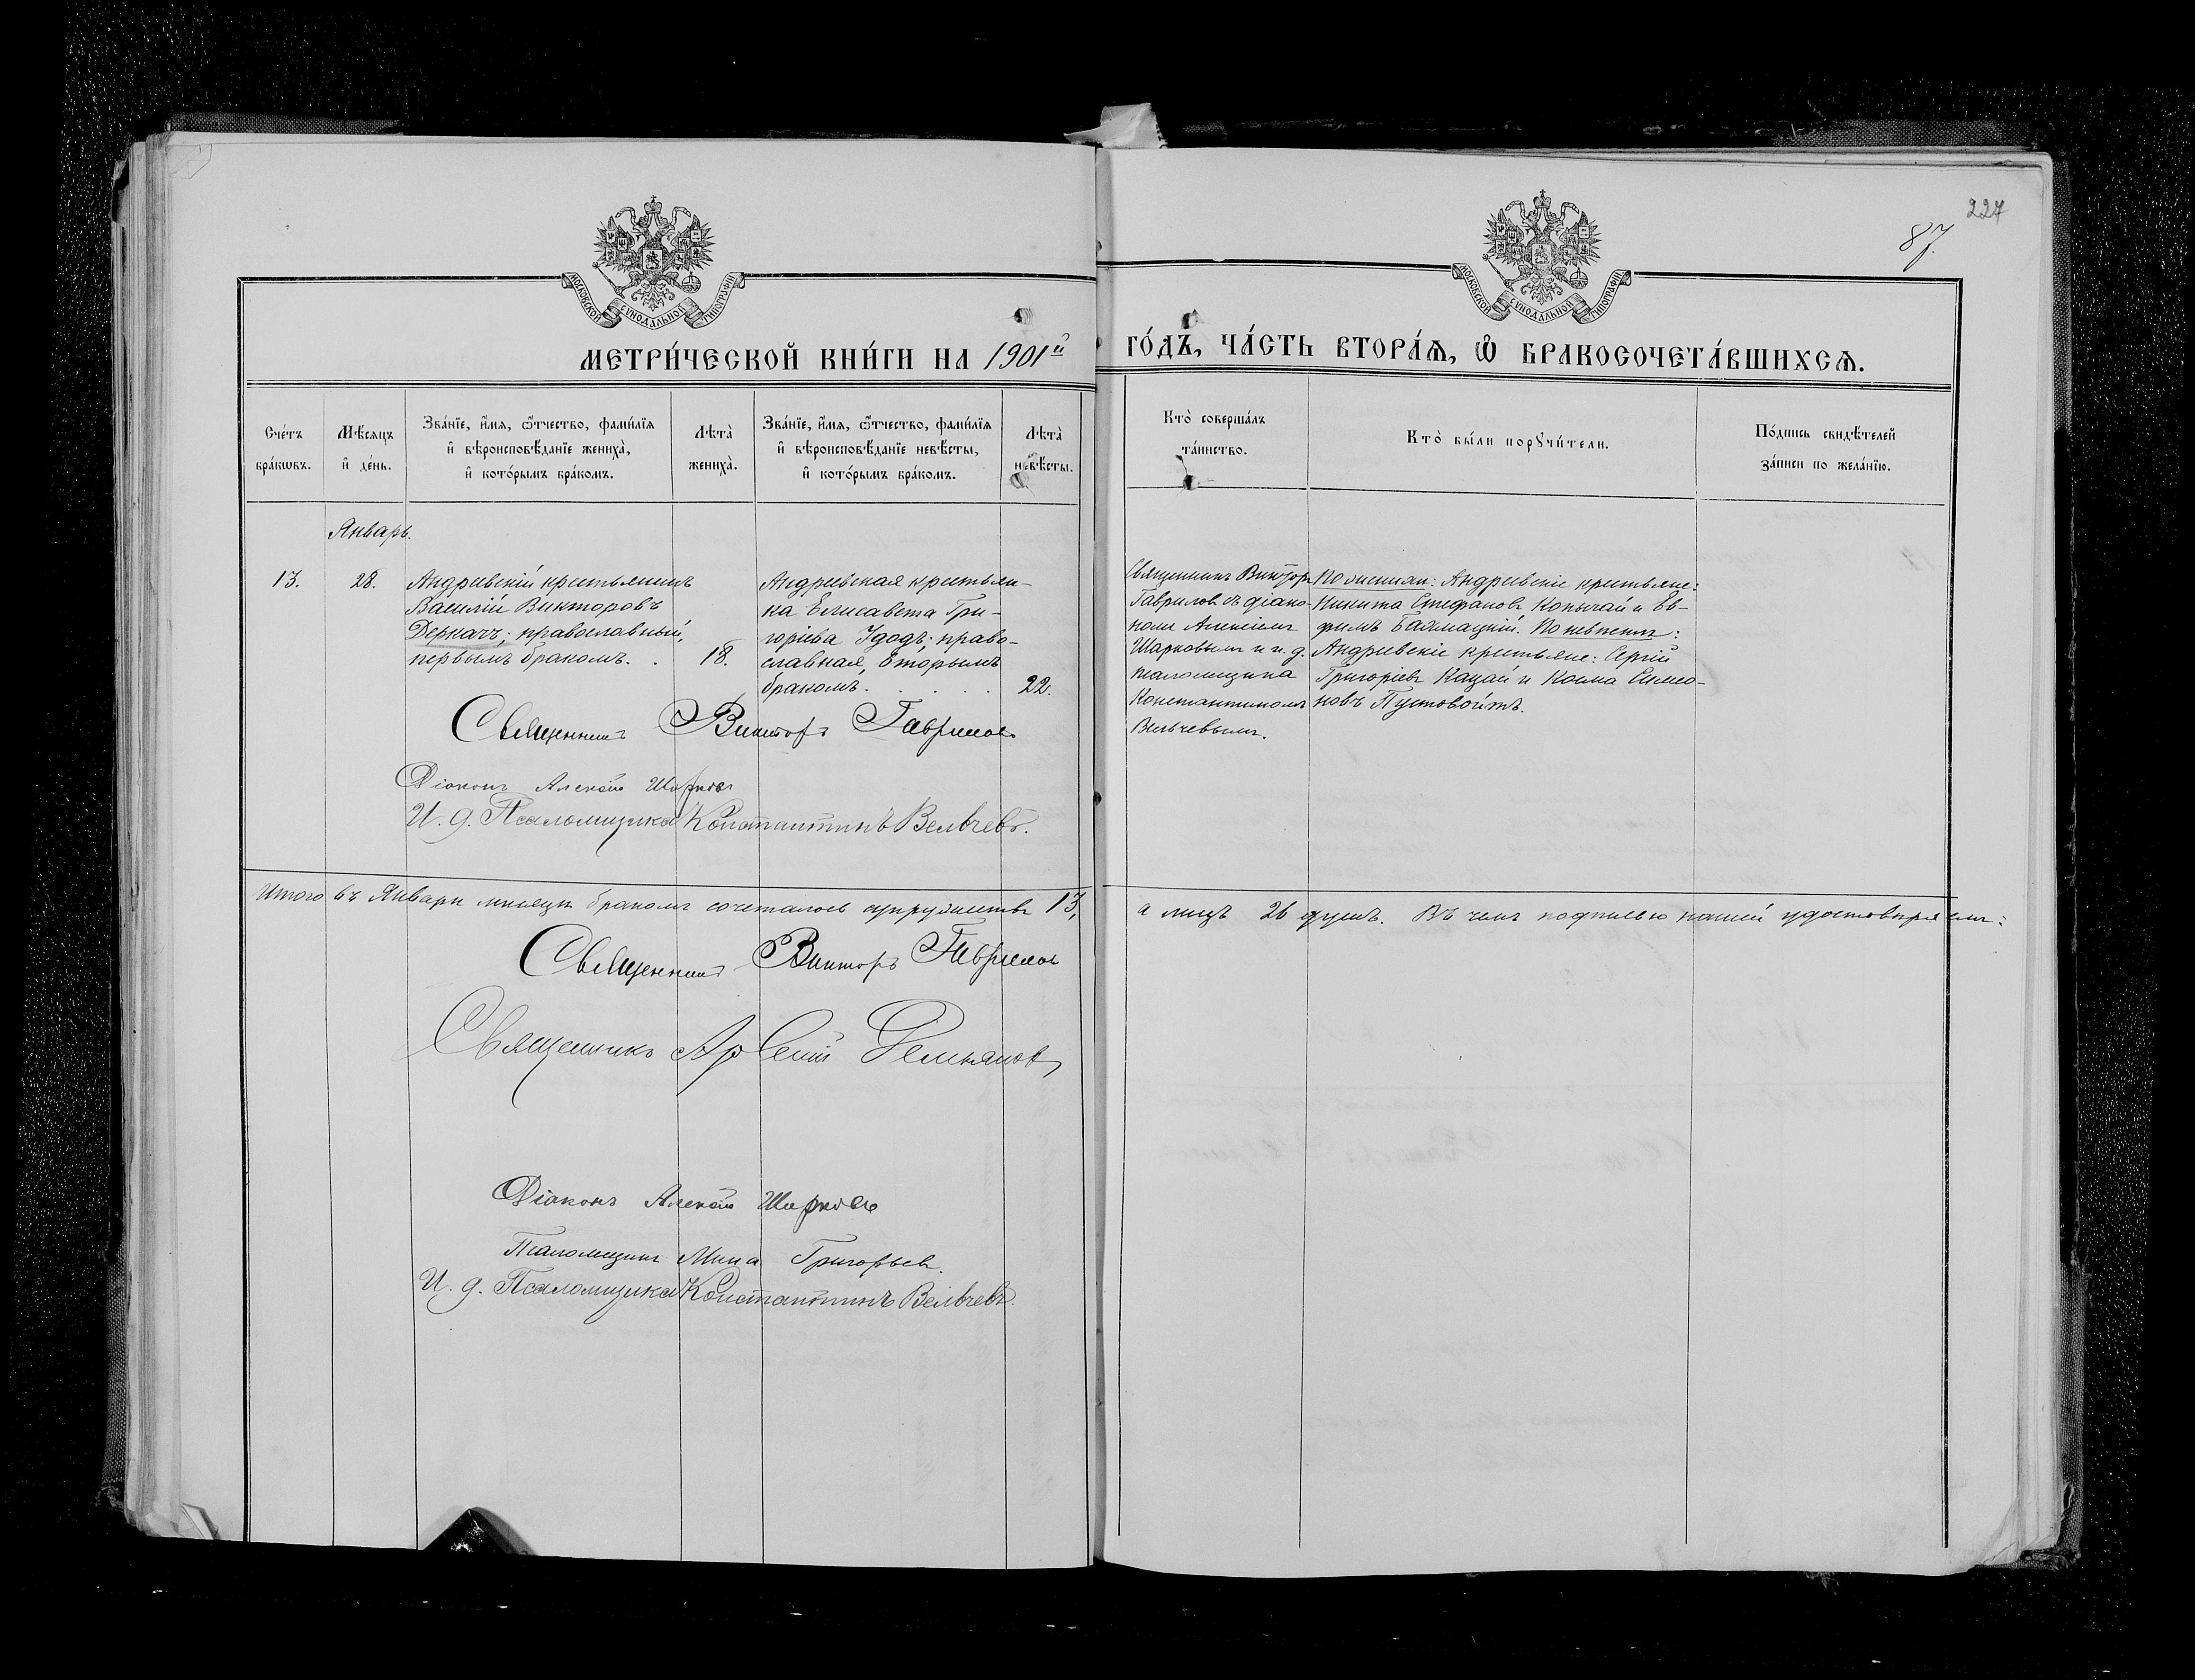 227
87.
МОСКОВСКОЙ СУНОДАЛЬНОЙ ТИПОГРАФІИ
МОСКОВСКОЙ СУНОДАЛЬНОЙ ТИПОГРАФІИ
МЕТРИ́ЧЕСКОЙ КНИ́ГИ НА 1901й
ГО́ДЪ, ЧА́СТЬ ВТОРА́Ѧ, Ѽ БРАКОСОЧЕТА́ВШИХСѦ.
Сче́тъ бра́кѡвъ.
Мѣ́сяцъ и҆ де́нь.
Зва́нїе, и҆́мѧ, ѻ҆́тчество, фамилїѧ
и҆ вѣроисповѣ́данїе жениха̀,
и҆ кото́рымъ бра́комъ.
Лѣта̀ жениха̀.
Зва́нїе, и҆́мѧ, ѻ҆́тчество, фамилїѧ
и҆ вѣроисповѣ́данїе невѣ́сты,
и҆ кото́рымъ бра́комъ.
Лѣта̀ невѣ́сты.
Кто̀ соверша́лъ
та́инство.
Кто̀ бы́ли порꙋчи́тели.
По́дпись свидѣ́телей
за́писи по жела́нїю.
Январь.
13.
28.
Андреевскій крестьянинъ
Василій Викторовъ
Деркачъ; православный,
первымъ бракомъ. .
18.
Андреевская крестьян-
ка Елисавета Гри-
горіева Удодъ; право-
славная, вторымъ
бракомъ . . . . .
22.
Священникъ Викторъ
Гавриловъ съ діако-
номъ Алексіемъ
Шарковымъ и и. д.
псаломщика
Константиномъ
Вельчевымъ.
По женихѣ: Андреевскіе крестьяне:
Никита Стефановъ Копычай и Ев-
фимъ Бахмацкій. По невѣстѣ:
Андреевскіе крестьяне: Сергій
Григоріевъ Кацай и Косма Симео-
новъ Пустовойтъ.
Священникъ Викторъ Гавриловъ
Діаконъ Алексій Шарковъ
И. д. Псаломщика Константинъ Вельчевъ.
Итого въ Январѣ мѣсяцѣ бракомъ сочеталось супружествъ 13,
а лицъ 26 душъ. Въ чемъ подписью нашей удостовѣряемъ:
Священникъ Викторъ Гавриловъ
Священникъ Арсеній Демьяновъ
Діаконъ Алексій Шарковъ
Псаломщикъ Мина Григорьевъ.
И. д. Псаломщика Константинъ Вельчевъ.